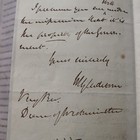 I presume you are under
the impression that it is
the property of the Govern-
ment.
Yours sincerely
W E Gladstone
Very Rev.
Dean of Westminster